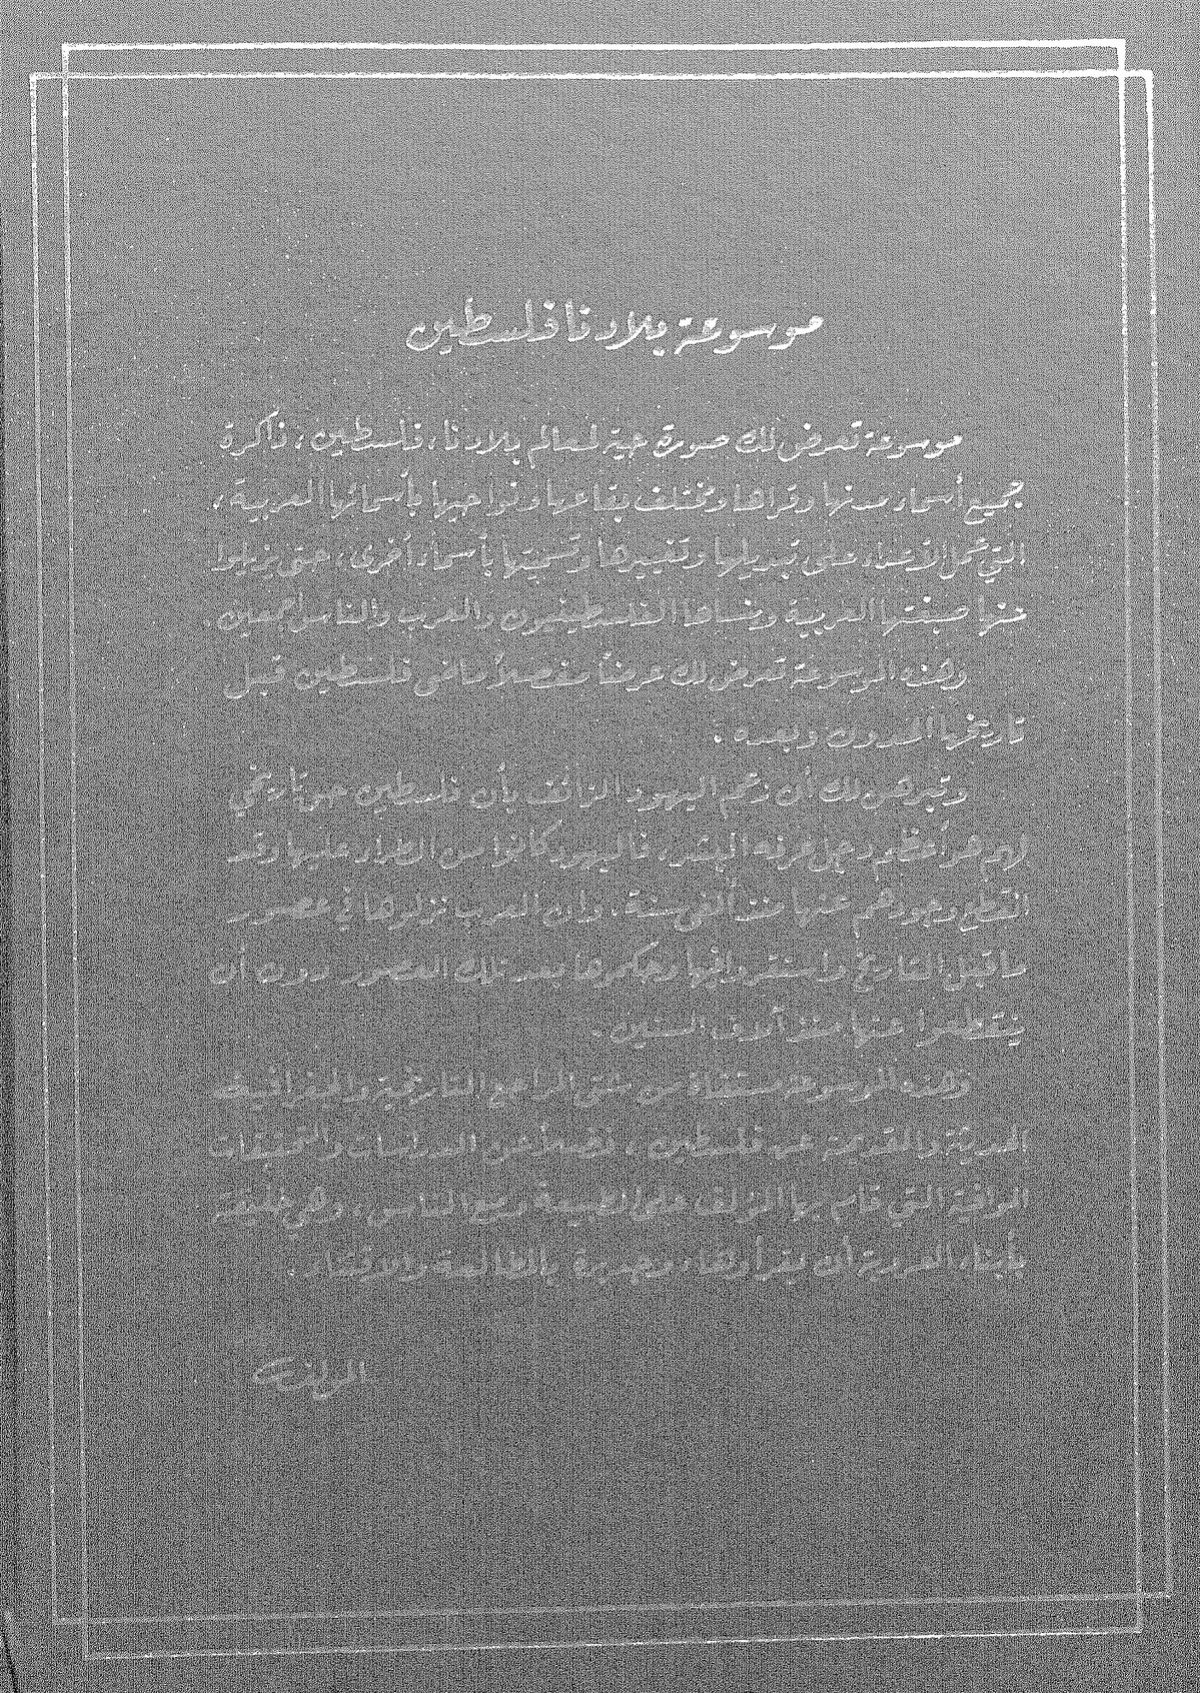 موسوعة بلادنا فلسطين
موسوعة تعرض لك صورة حية لمعالم بلادنا، فلسطين، ذاكرة
جميع أسماء مدنها وقراها ومختلف بقاعها ونواحيها بأسمائها العربية،
التي عمل الأعداء على تبديلها وتغييرها وتسميتها بأسماء أخرى، حتى يزيلوا
عنها صبغتها العربية وينساها الفلسطينيون والعرب والناس أجمعين.
وهذه الموسوعة تعرض لك عرضاً مفصلاً ماضي فلسطين قبل
تاريخها المدون وبعده.
وتبرهن لك أن زعم اليهود الزائف بأن فلسطين حق تاريخي
لهم هو أعظم دجل عرفه البشر، فاليهود كانوا من الطراء عليها وقد
انقطع وجودهم عنها منذ ألفي سنة، وان العرب نزلوها في عصور
ما قبل التاريخ واستقروا فيها وحكموها بعد تلك العصور دون أن
ينقطعوا عنها منذ آلاف السنين.
وهذه الموسوعة مستقاة من شتى المراجع التاريخية والجغرافية
الحديثة والقديمة عن فلسطين، فضلاً عن الدراسات والتحقيقات
الوافية التي قام بها المؤلف على الطبيعة ومع الناس، وهي خليقة
بأبناء العروبة أن يقرأوها، وجديرة بالمطالعة والاقتناء.
المؤلف